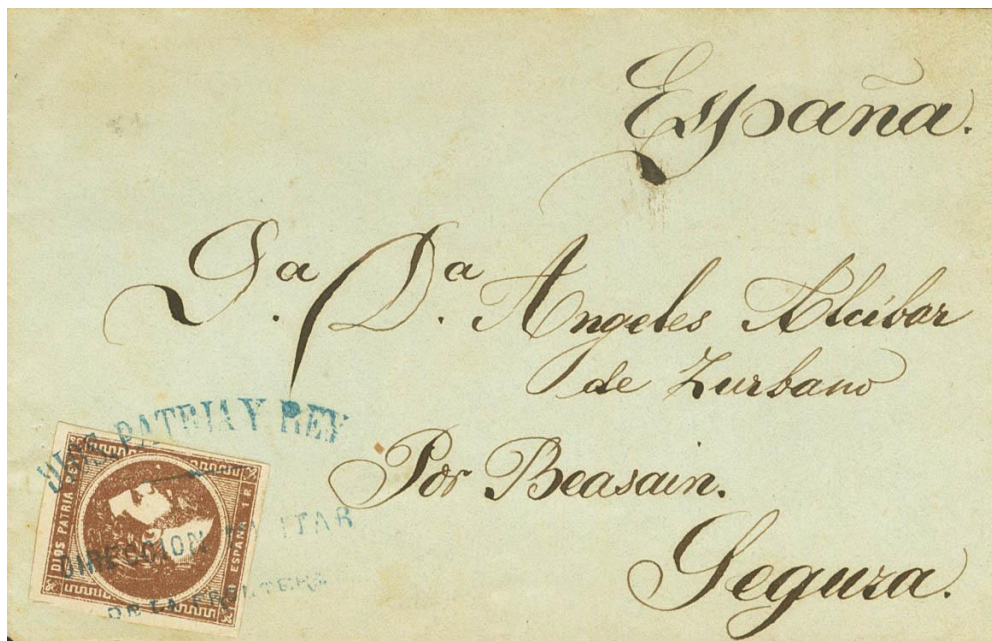 España.
Sa. / Da. Angeles Alcíbar
de Zurbano
Por Beasain.
Segura.
DIOS PATRIA Y REY
DIRECCION MILITAR
DE LA FRONTERA
DIOS PATRIA REY
ESPAÑA 1 R